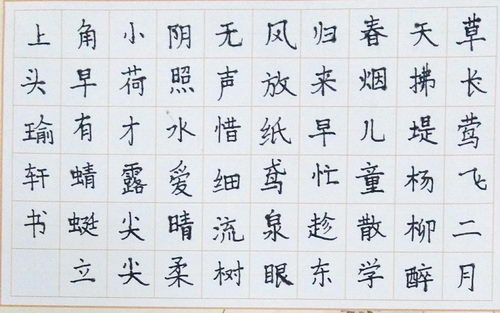 草长莺飞二月
天拂堤杨柳醉
春烟儿童散学
归来早忙趁东
风放纸鸢泉眼
无声惜细流树
阴照水爱晴柔
小荷才露尖尖
角早有蜻蜓立
上头瑜轩书